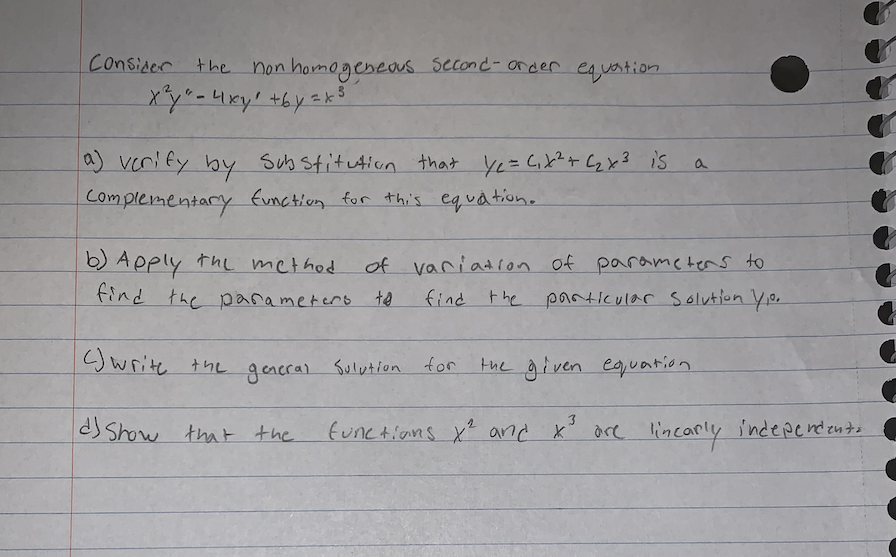 Consider the nonhomogeneous second-order equation
x²y" - 4xy' + 6y = x³
a) verify by substitution that yc = C₁x² + C₂x³ is a
complementary function for this equation.
b) Apply the method of variation of parameters to
find the parameters to find the particular solution yp.
c) write the general solution for the given equation
d) Show that the functions x² and x³ are linearly independent.